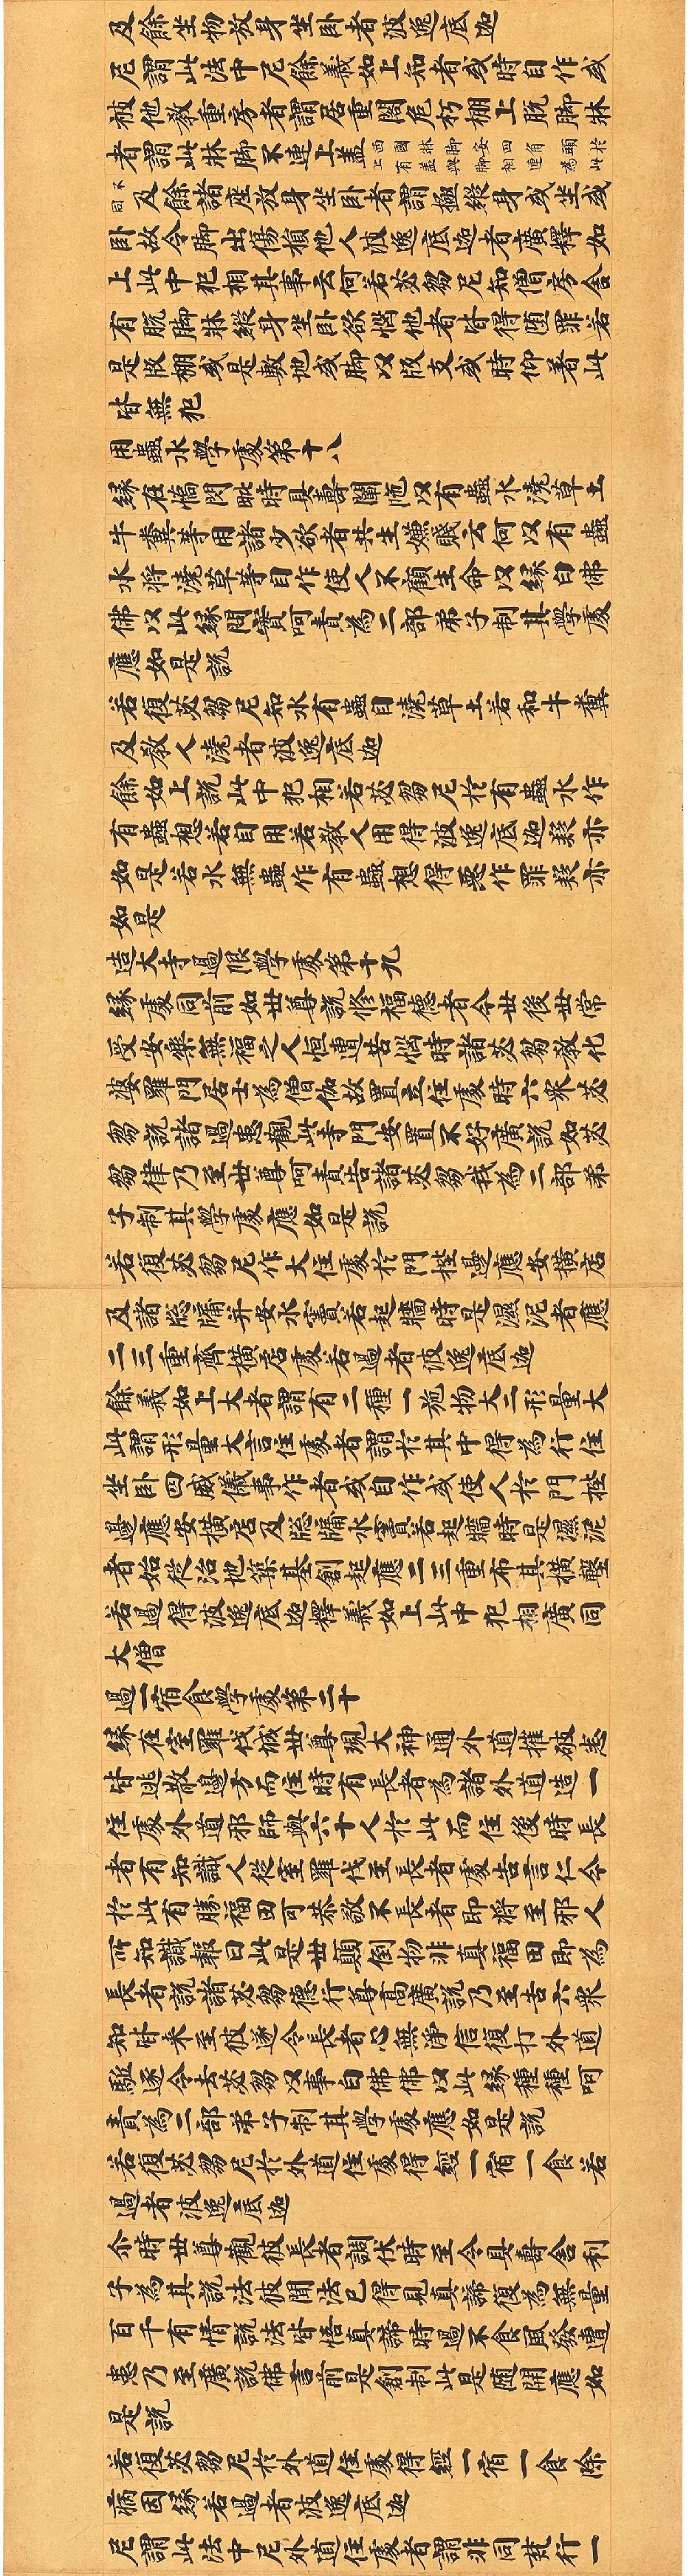 及餘坐物放身坐卧者波逸底迦
尼謂此法中尼餘義如上知者或時自作或
被他教重房者謂居重閣危朽棚上脫脚牀
者謂此牀脚不連上蓋西國牀脚安四角為頭上有蓋與脚相連於此
不同及餘諸座放身坐卧者謂極縱身或坐或
卧故令脚出傷損他人波逸底迦者廣釋如
上此中犯相其事云何若苾芻尼知僧房舍
有脫脚牀縱身坐卧欲惱他者皆得墮罪若
是版棚或是敷地或脚以版支或時仰著此
皆無犯
用蟲水學處第十八
緣在憍閃毗時具壽闡陁以有蟲水澆草土
牛糞等用諸少欲者共生嫌賤云何以有蟲
水將澆草等自作使人不顧生命以緣白佛
佛以此緣問實呵責為二部弟子制其學處
應如是說
若復苾芻尼知水有蟲自澆草土若和牛糞
及教人澆者波逸底迦
餘如上說此中犯相若苾芻尼於有蟲水作
有蟲想若自用若教人用得波逸底迦疑亦
如是若水無蟲作有蟲想得惡作罪疑亦
如是
造大寺過限學處第十九
緣處同前如世尊說修福德者今世後世常
受安樂無福之人恒遭苦惱時諸苾芻教化
婆羅門居士為僧伽故置立住處時六眾苾
芻說諸過患觀此寺門安置不好廣說如苾
芻律乃至世尊呵責告諸苾芻我為二部弟
子制其學處應如是說
若復苾芻尼作大住處於門桄邊應安橫扂
及諸䆫牖并安水竇若起牆時是濕泥者應
二三重齊橫扂處若過者波逸底迦
餘義如上大者謂有二種一施物大二形量大
此謂形量大言住處者謂於其中得為行住
坐卧四威儀事作者或自作或使人於門桄
邊應安橫扂及䆫牖水竇若起牆時是濕泥
者始從治地築基創起應二三重布其橫墼
若過得波逸底迦釋義如上此中犯相廣同
大僧
過一宿食學處第二十
緣在室羅伐城世尊現大神通外道摧破悉
皆逃散邊方而住時有長者為諸外道造一
住處外道邪師與六十人於此而住後時長
者有知識人從室羅伐至長者處告言仁今
於此有勝福田可恭敬不長者即將至邪人
所知識報曰此是世顛倒物非真福田即為
長者說諸苾芻德行尊高廣說乃至告六眾
知皆來至彼遂令長者心無淨信復打外道
驅逐令去苾芻以事白佛佛以此緣種種呵
責為二部弟子制其學處應如是說
若復苾芻尼於外道住處得經一宿一食若
過者波逸底迦
尒時世尊觀彼長者調伏時至令具壽舍利
子為其說法彼聞法已得見真諦復為無量
百千有情說法皆悟真諦時過不食風發遭
患乃至廣說佛言前是創制此是隨開應如
是說
若復苾芻尼於外道住處得經一宿一食除
病因緣若過者波逸底迦
尼謂此法中尼外道住處者謂非同梵行一